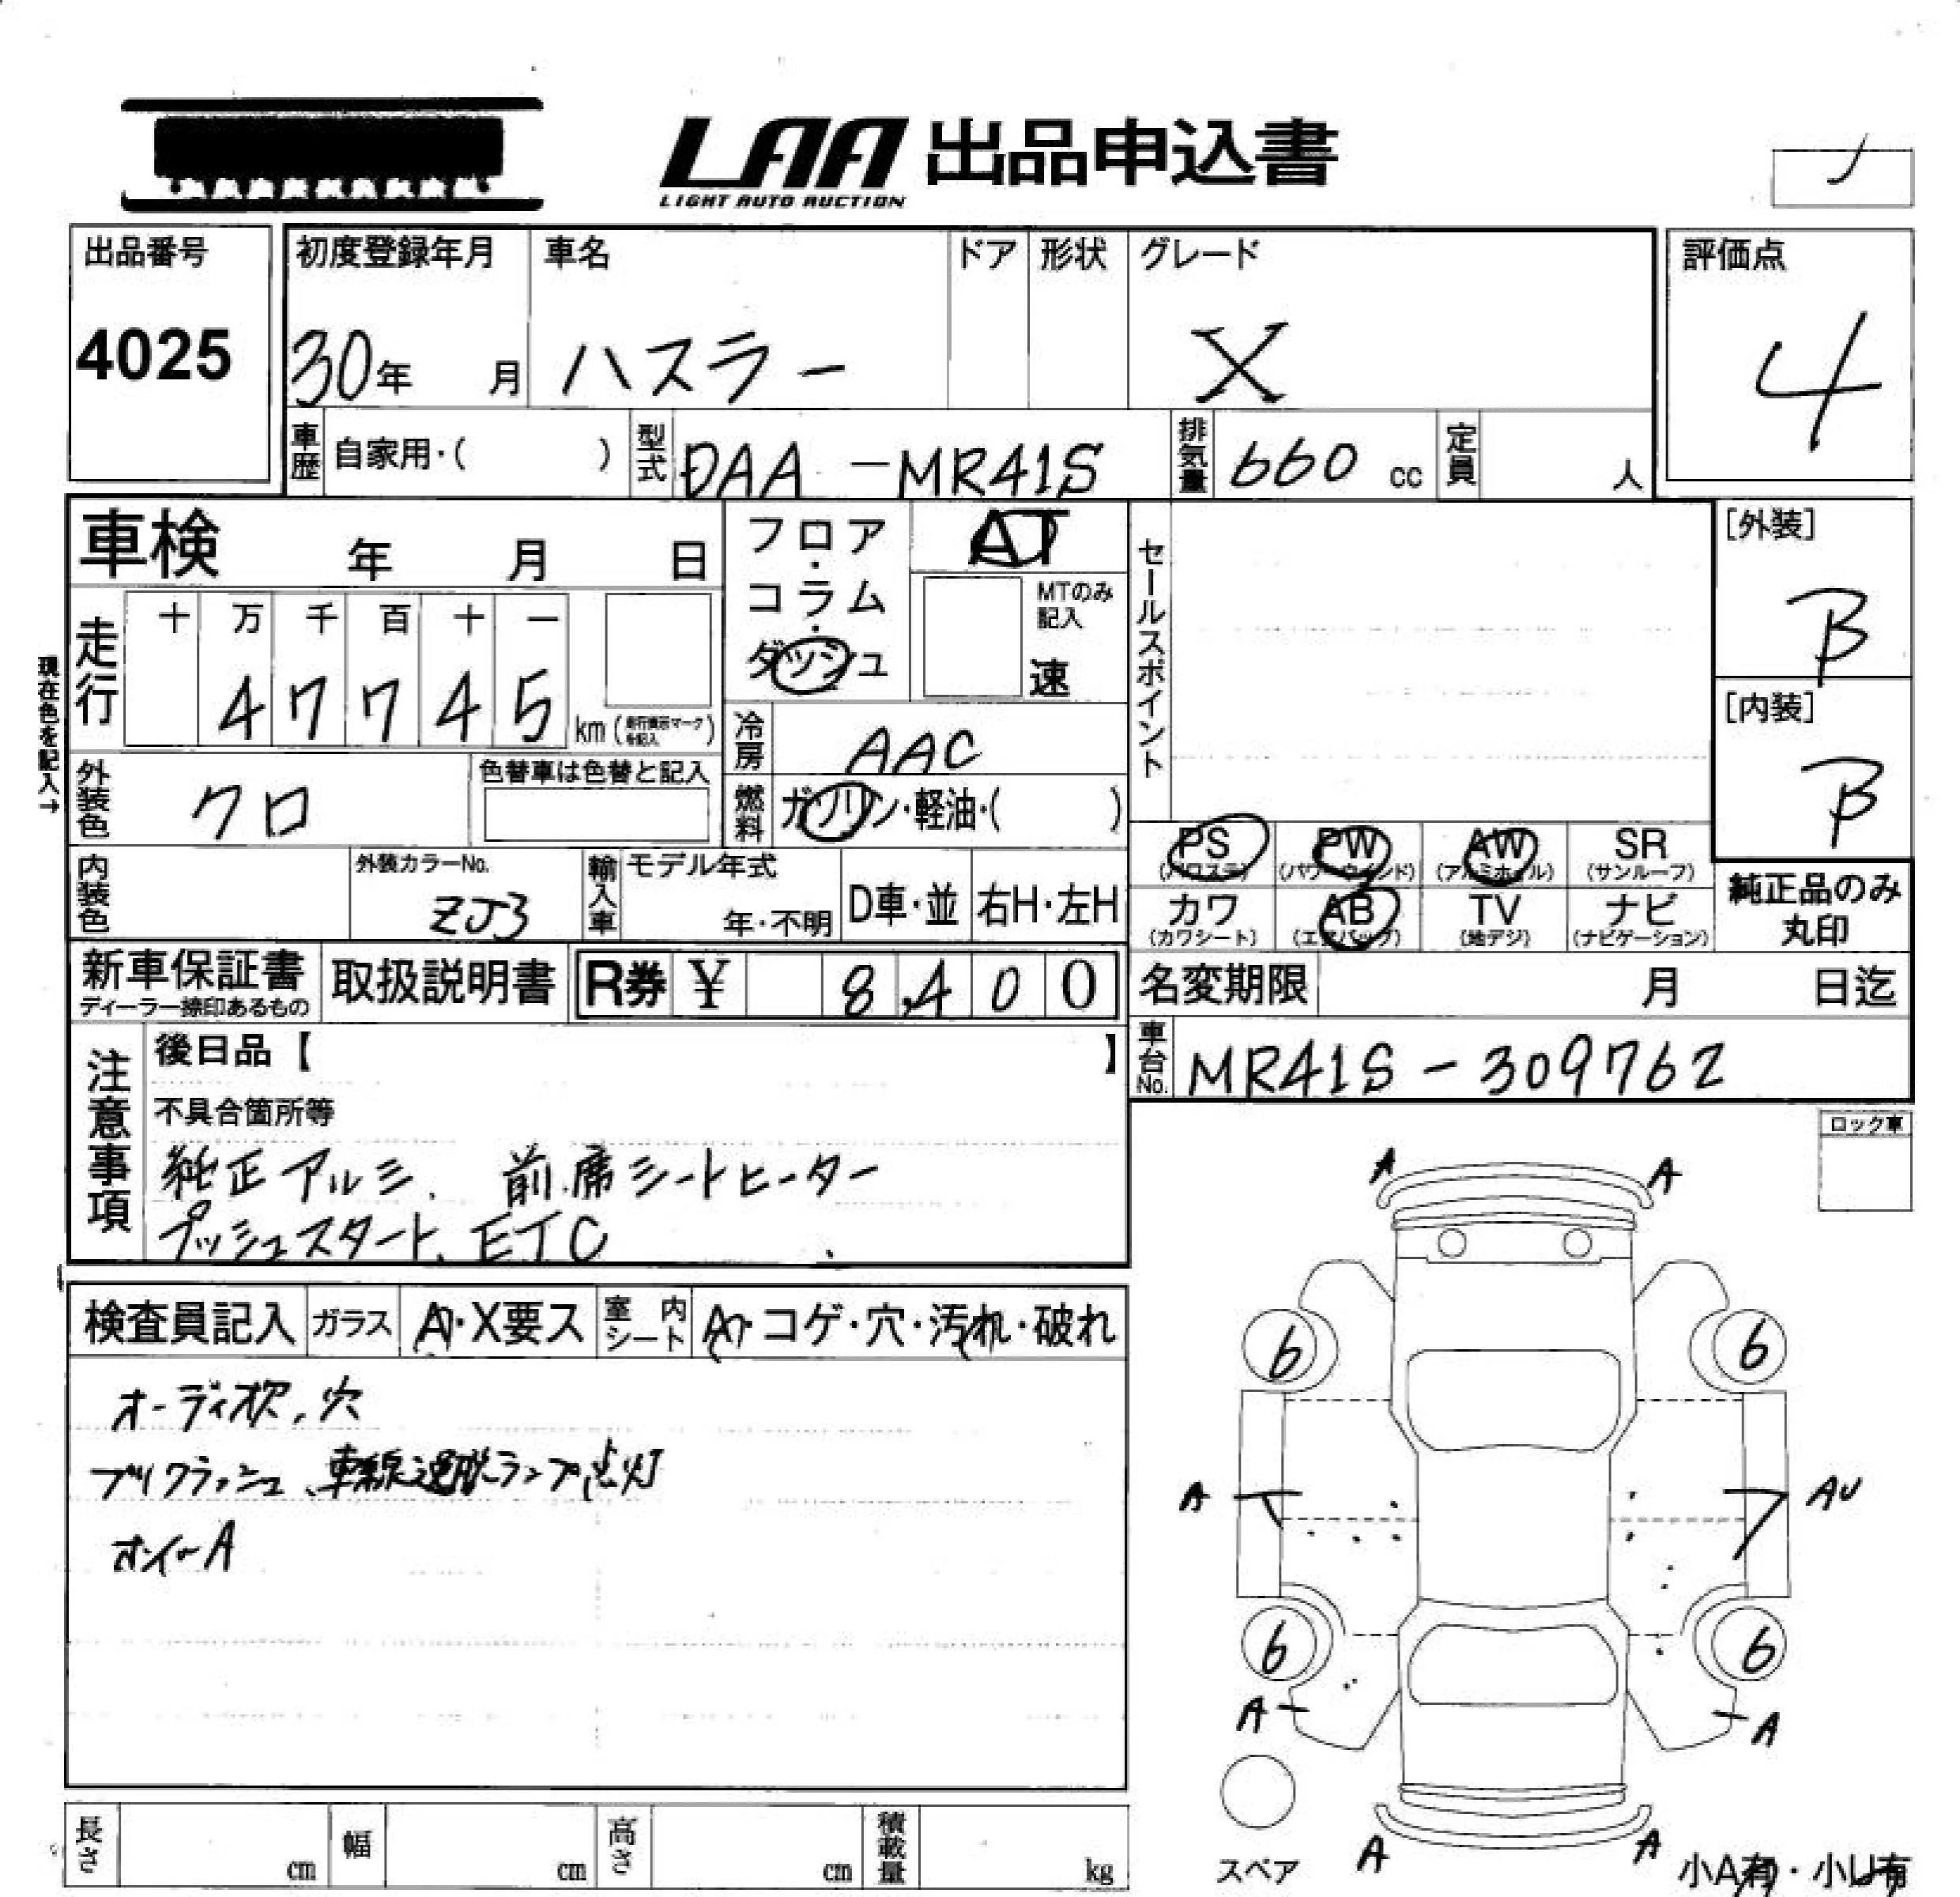 LAA 出品申込書
LIGHT AUTO AUCTION
出品番号 初度登録年月 車名 ドア 形状 グレード 評価点
4025 30年 月 ハスラー X 4
車歴 自家用・( ) 型式 DAA-MR41S 排気量 660 cc 定員 人
車検 年 月 日 フロア・コラム・ダッシュ AT セールスポイント [外装]
B
MTのみ記入
速
現在色を記入→
走行 十 万 千 百 十 一
4 7 7 4 5 km (走行表示マークを記入)
[内装]
B
冷房 AAC
外装色 クロ 色替車は色替と記入 燃料 ガソリン・軽油・( )
PS (パワステ) PW (パワーウインド) AW (アルミホイル) SR (サンルーフ)
内装色 外装カラーNo. ZJ3 輸入車 モデル年式 年・不明 D車・並 右H・左H
カワ (カワシート) AB (エアバッグ) TV (地デジ) ナビ (ナビゲーション) 純正品のみ丸印
新車保証書 ディーラー捺印あるもの 取扱説明書 R券 ¥ 8,400 名変期限 月 日迄
注意事項 後日品【 】 車台No. MR41S-309762
不具合箇所等 ロック車
純正アルミ、前席シートヒーター
プッシュスタート、ETC
A A
検査員記入 ガラス A・X要ス 室内シート A・コゲ・穴・汚れ・破れ
6 6
オーディオ欠、穴
ブリクラッシュ、車線逸脱ランプ点灯
A AU
ホイールA
6 6
A A
長さ cm 幅 cm 高さ cm 積載量 kg
スペア A A 小A有・小U有